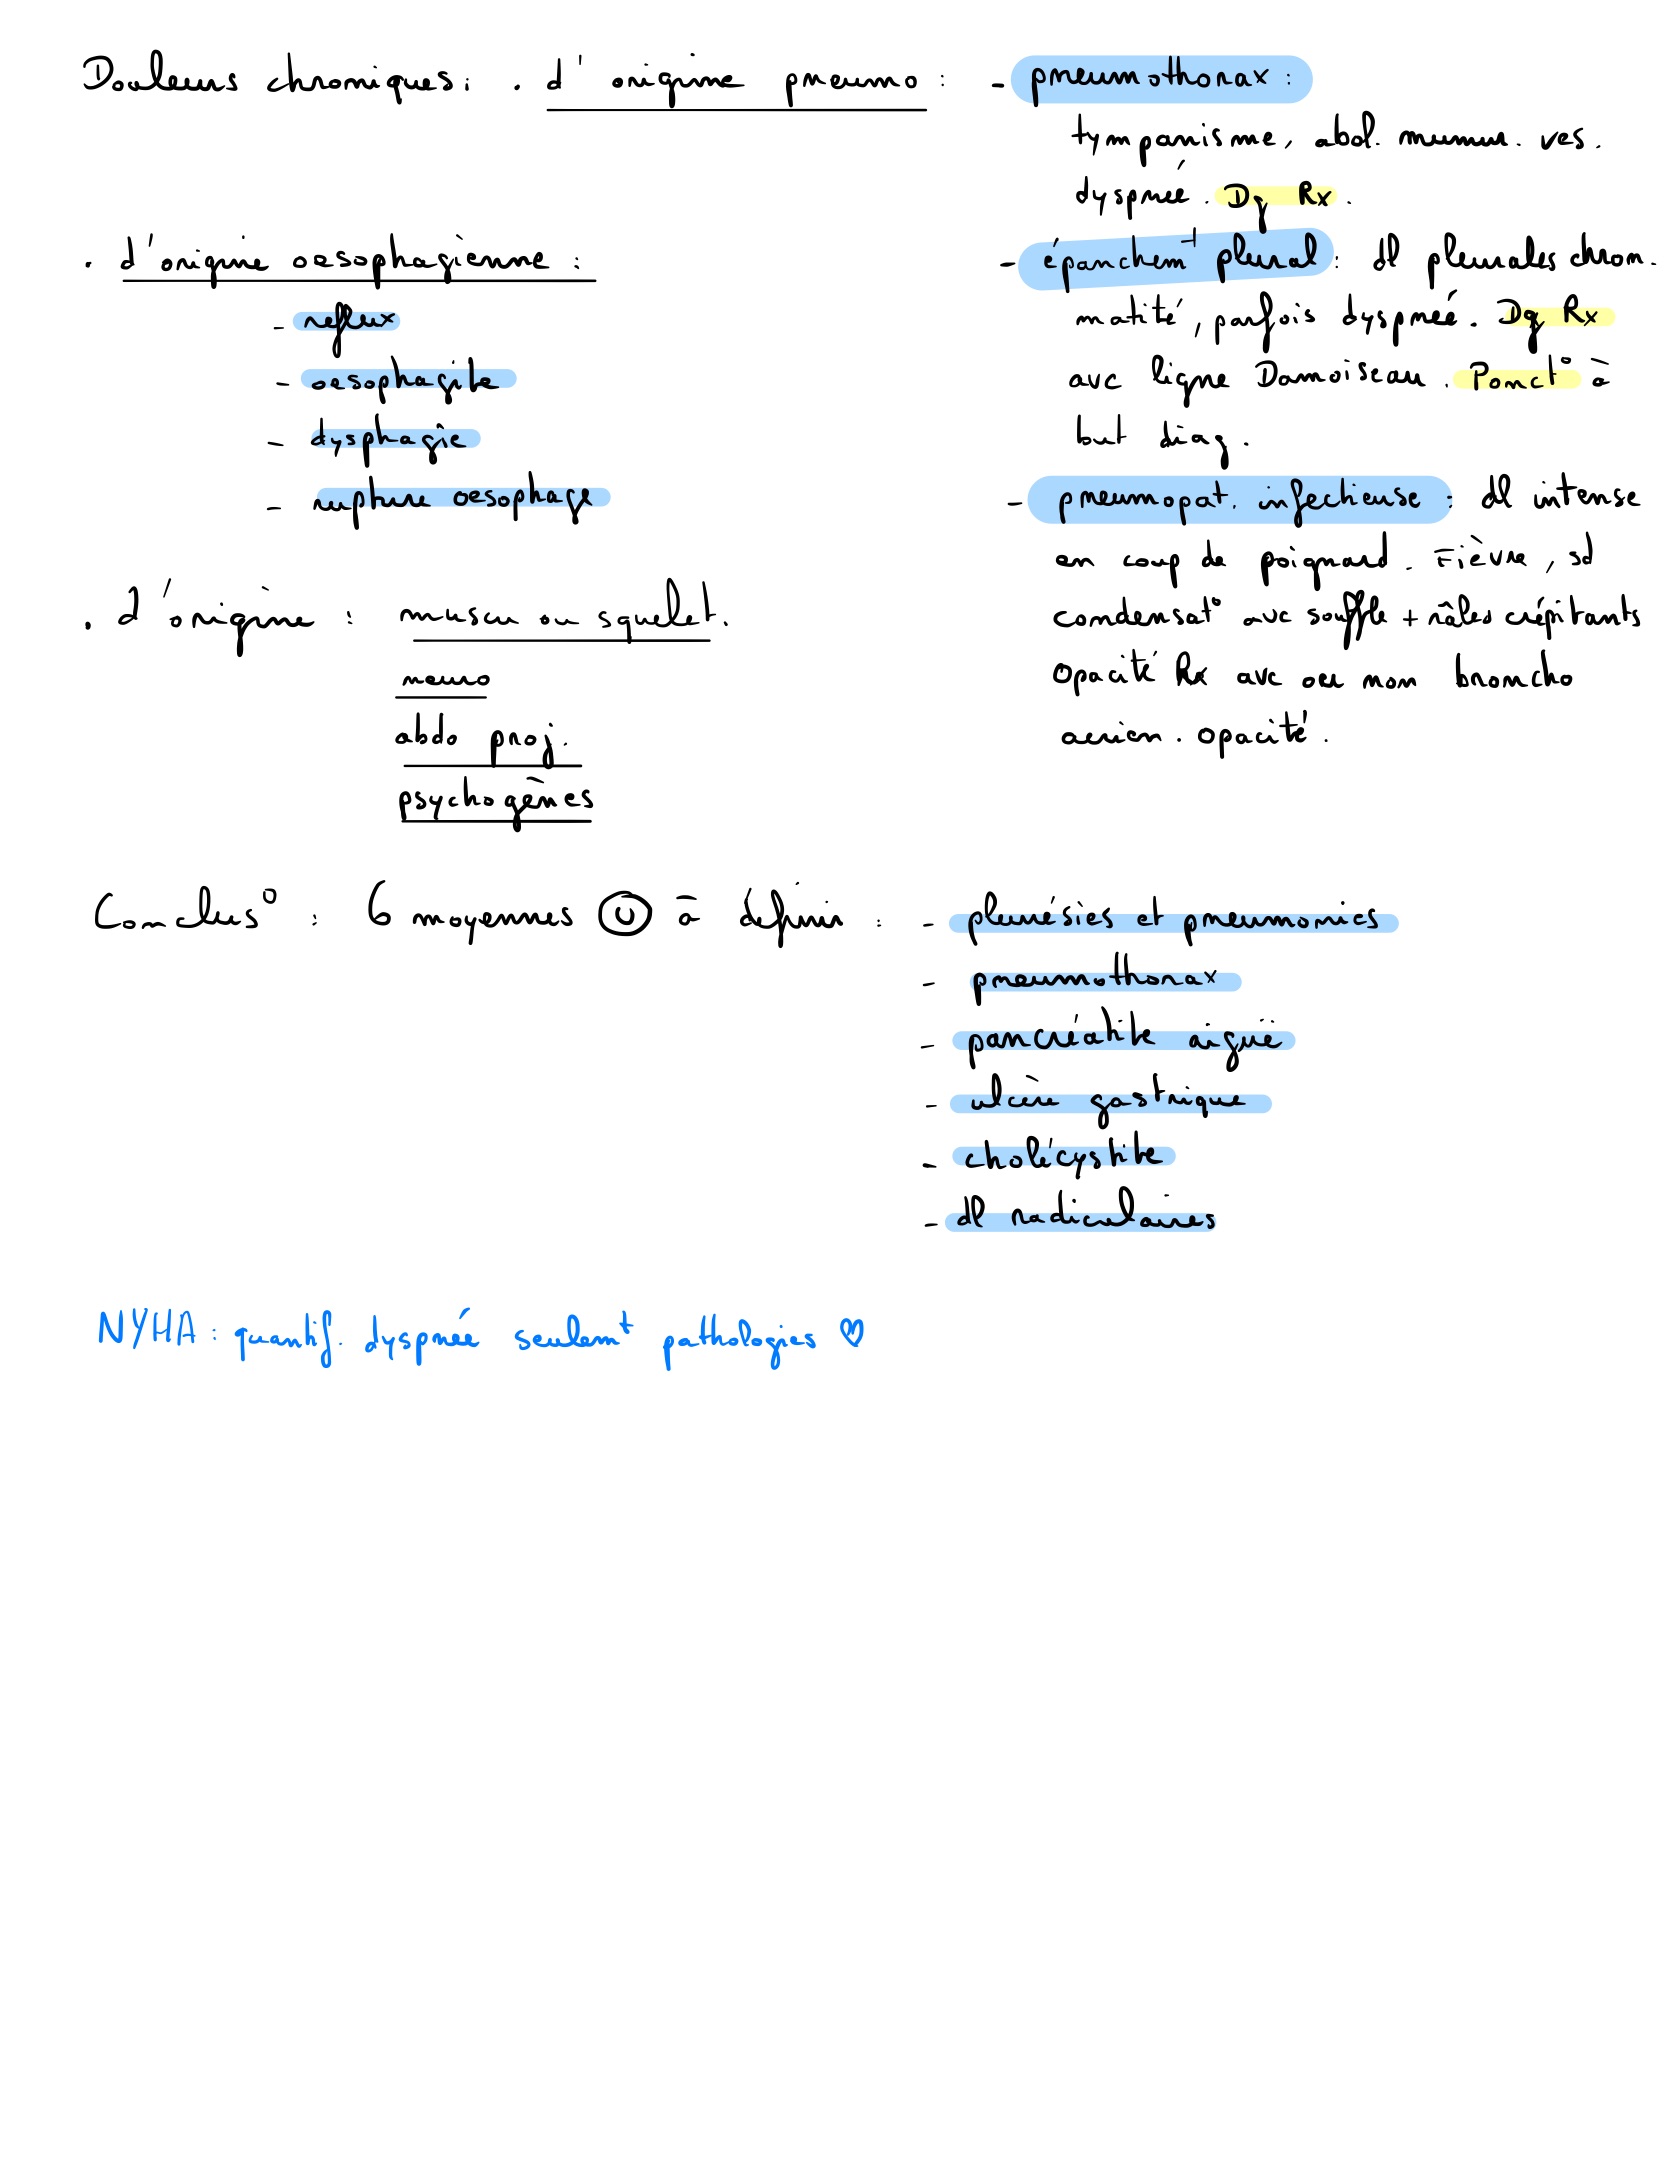 Douleurs chroniques : . d'origine pneumo : - pneumothorax :
tympanisme, abol. murmur. ves.
dyspnée. Dg Rx.
- épanchemt pleural : dl pleurales chron.
matité, parfois dyspnée. Dg Rx
avc ligne Damoiseau. Ponct° à
but diag.
- pneumopat. infectieuse : dl intense
en coup de poignard. Fièvre, sd
condensat° avc souffle + râles crépitants
Opacité Rx avc ou non broncho
aerien. opacité.
. d'origine oesophagienne :
- reflux
- oesophagite
- dysphagie
- rupture oesophage
. d'origine : muscu ou squelet.
neuro
abdo proj.
psychogènes
Conclus° : 6 moyennes Ⓤ à définir : - pleurésies et pneumonies
- pneumothorax
- pancréatite aigüe
- ulcère gastrique
- cholécystite
- dl radiculaires
NYHA : quantif. dyspnée seulemt pathologies ♡